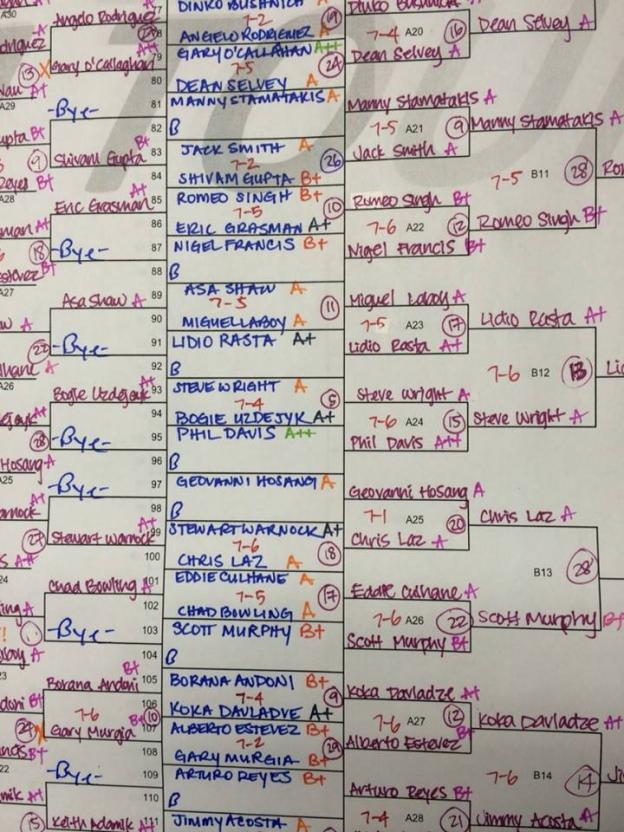 A30
77
DINKO BUSHNICH A
Angelo Rodriguez
7-2 19
78
ANGIELO RODRIGUEZ A
7-4 A20 16 Dean Selvey A
79
GARY O'CALLAHAN A++
Dean Selvey A
13 X Gary O'Callaghan
7-5 24
80
DEAN SELVEY A
A29
-Bye-
81
MANNY STAMATAKIS A
Manny Stamatakis A
82
B
7-5 A21 9 Manny Stamatakis A
upta B+
JACK SMITH A
Jack Smith A
9 Shivam Gupta B+
83
7-2 26
7-5 B11 28
84
SHIVAM GUPTA B+
Reyes B+
A28
ROMEO SINGH B+
Romeo Singh B+
Eric Grasman A+
85
7-5 10
7-6 A22 12 Romeo Singh B+
86
ERIC GRASMAN A+
18 -Bye-
87
NIGEL FRANCIS B+
Nigel Francis B+
88
B
A27
Asa Shaw A
89
ASA SHAW A
Miguel Laboy A
7-5 11
90
MIGUELLABOY A
7-5 A23 17 Lidio Rasta A+
-Bye-
91
LIDIO RASTA A+
Lidio Rasta A+
92
B
7-6 B12 13
A26
Bogie Uzdejyk A+
93
STEVE WRIGHT A
Steve Wright A
7-4 5
94
BOGIE UZDEJYK A+
7-6 A24 15 Steve Wright A
-Bye-
95
PHIL DAVIS A++
Phil Davis A++
96
B
Hosang A
A25
-Bye-
97
GEOVANNI HOSANG A
Geovanni Hosang A
98
B
7-1 A25 20 Chris Laz A
27 Stewart Warnock A+
99
STEWART WARNOCK A+
Chris Laz A
7-6 18
100
CHRIS LAZ A
B13 28
Chad Bowling A
101
EDDIE CULHANE A
Eddie Culhane A
7-5 17
102
CHAD BOWLING A
7-6 A26 22 Scott Murphy B+
-Bye-
103
SCOTT MURPHY B+
Scott Murphy B+
104
B
Borana Andoni B+
105
BORANA ANDONI B+
Koka Davladze A+
7-4 9
106
KOKA DAVLADVE A+
7-6 A27 12 Koka Davladze A+
7-6 10
Gary Murgia B+
107
ALBERTO ESTEVEZ B+
Alberto Estevez B+
7-2 19
108
GARY MURGIA B+
7-6 B14 14
-Bye-
109
ARTURO REYES B+
Arturo Reyes B+
110
B
7-4 A28 21 Jimmy Acosta A
15 Keith Adamik A+
111
JIMMY ACOSTA A